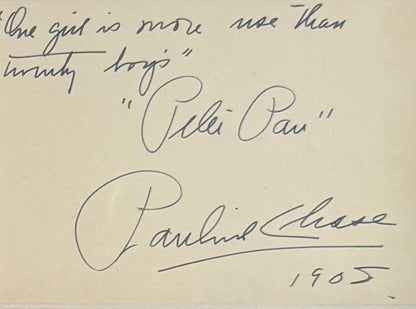 "One girl is more use than
twenty boys"
"Peter Pan"
Pauline Chase
1905.